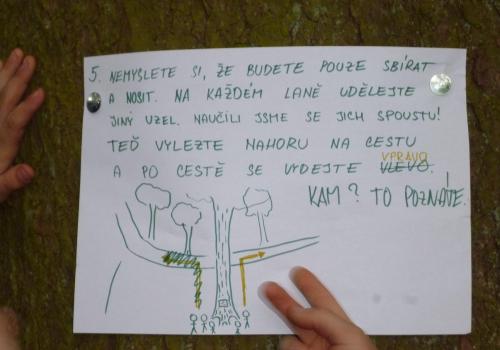 5. NEMYSLETE SI, ŽE BUDETE POUZE SBÍRAT
A NOSIT. NA KAŽDÉM LANĚ UDĚLEJTE
JINÝ UZEL. NAUČILI JSME SE JICH SPOUSTU!
TEĎ VYLEZTE NAHORU NA CESTU
VPRAVO
A PO CESTĚ SE VYDEJTE VLEVO.
KAM? TO POZNÁTE.